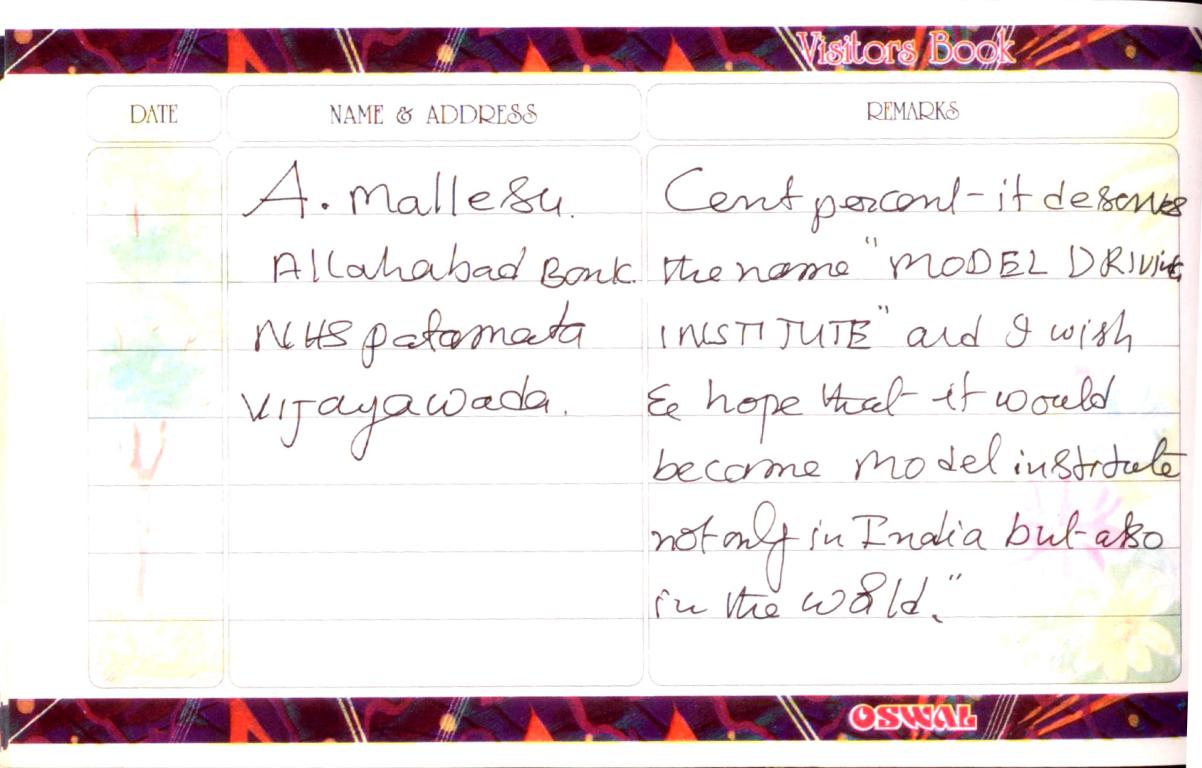 Visitors Book
DATE
NAME & ADDRESS
REMARKS
A. Mallesu.
Allahabad Bank.
NHS patamata
Vijayawada.
Cent percent - it deserves
the name "MODEL DRIVING
INSTITUTE" and I wish
& hope that it would
become model institute
not only in India but also
in the world."
OSWAL